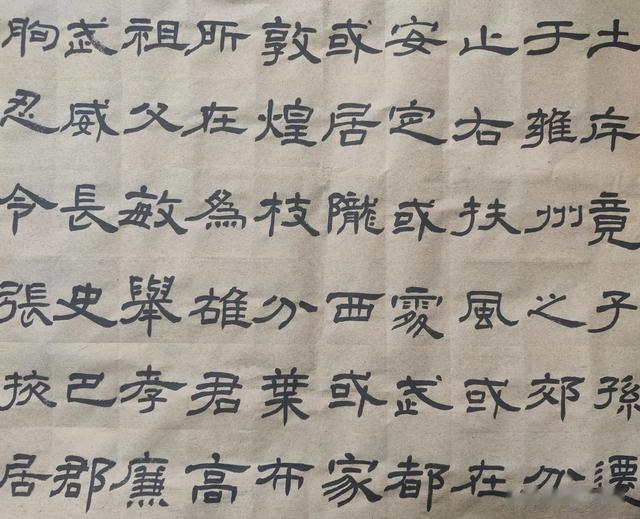 土斥竟子孫遷
于雍州之郊分
止右扶風或在
安定或處武都
或居隴西或家
敦煌枝分葉布
所在爲雄君高
祖父敏舉孝廉
武威長史巴郡
朐忍令張掖居